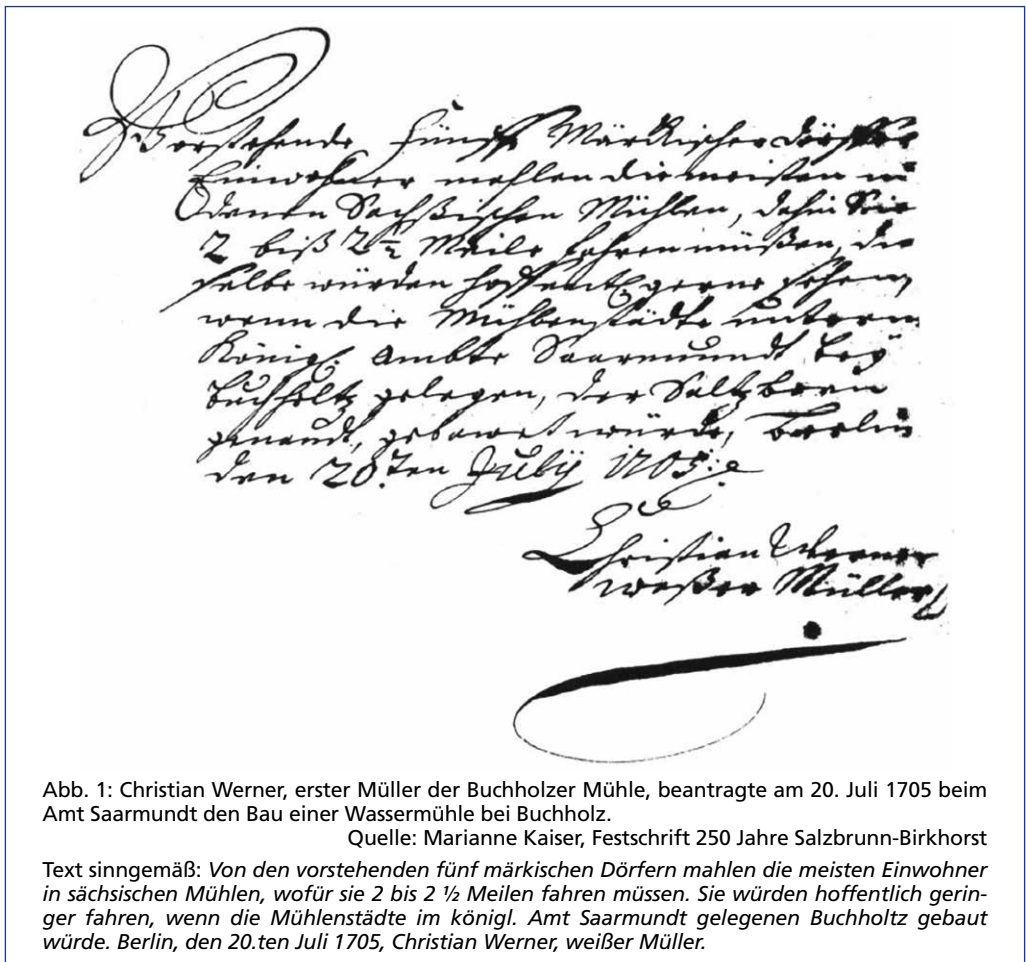 Vorstehende Fünff Märkischer dörffer
Einwohner mahlen die meisten in
denen Sächßischen Mühlen, dahin Sie
2 biß 2½ Meile fahren müßen, die
selbe würden hoffentl. gerne sehen,
wenn die Mühlenstädte unterm
Königl. Ambte Saarmundt bey
Buchholtz gelegen, der Saltzborn
genandt, gebawet würde, Berlin
den 20.ten July 1705.
Christian Werner
Müller
Abb. 1: Christian Werner, erster Müller der Buchholzer Mühle, beantragte am 20. Juli 1705 beim
Amt Saarmundt den Bau einer Wassermühle bei Buchholz.
Quelle: Marianne Kaiser, Festschrift 250 Jahre Salzbrunn-Birkhorst
Text sinngemäß: Von den vorstehenden fünf märkischen Dörfern mahlen die meisten Einwohner
in sächsischen Mühlen, wofür sie 2 bis 2 ½ Meilen fahren müssen. Sie würden hoffentlich gerin-
ger fahren, wenn die Mühlenstädte im königl. Amt Saarmundt gelegenen Buchholtz gebaut
würde. Berlin, den 20.ten Juli 1705, Christian Werner, weißer Müller.